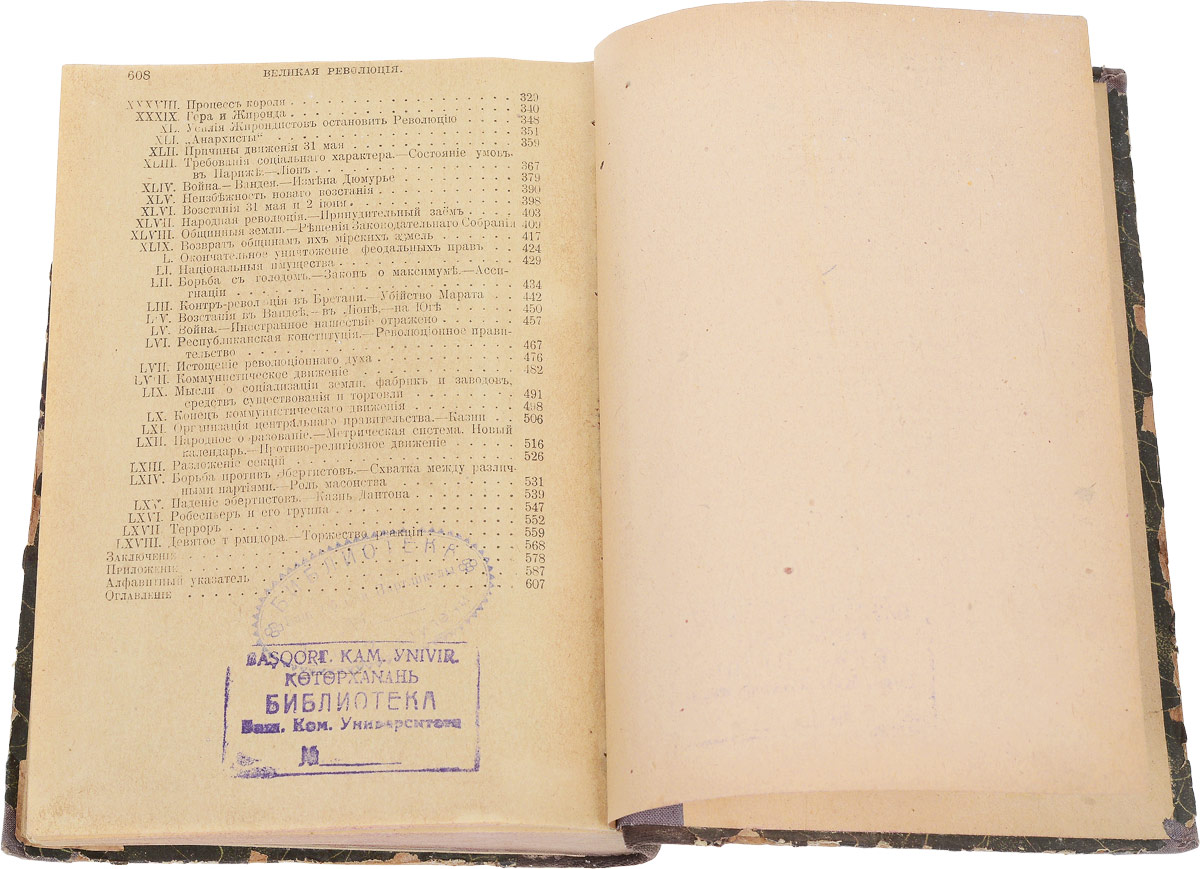 608 ВЕЛИКАЯ РЕВОЛЮЦІЯ.
XXXVIII. Процессъ короля 329
XXXIX. Гора и Жиронда 340
XL. Усилія Жирондистовъ остановить Революцію 348
XLI. „Анархисты“ 351
XLII. Причины движенія 31 мая 359
XLIII. Требованія соціальнаго характера.—Состояніе умовъ
въ Парижѣ.—Ліонъ 367
XLIV. Война.—Вандея.—Измѣна Дюмурье 379
XLV. Неизбѣжность новаго возстанія 390
XLVI. Возстанія 31 мая и 2 іюня 398
XLVII. Народная революція.—Принудительный заёмъ 403
XLVIII. Общинныя земли.—Рѣшенія Законодательнаго Собранія 409
XLIX. Возвратъ общинамъ ихъ мірскихъ земель 417
L. Окончательное уничтоженіе феодальныхъ правъ 424
LI. Національныя имущества 429
LII. Борьба съ голодомъ.—Законъ о максимумѣ.—Асси-
гнаціи 434
LIII. Контръ-революція въ Бретани.—Убійство Марата 442
L·V. Возстанія въ Вандеѣ,—въ Ліонѣ,—на Югѣ 450
LV. Война.—Иностранное нашествіе отражено 457
LVI. Республиканская конституція.—Революціонное прави-
тельство 467
LVII. Истощеніе революціоннаго духа 476
LVIII. Коммунистическое движеніе 482
LIX. Мысли о соціализаціи земли, фабрикъ и заводовъ,
средствъ существованія и торговли 491
LX. Конецъ коммунистическаго движенія 498
LXI. Организація центральнаго правительства.—Казни 506
LXII. Народное образованіе.—Метрическая система. Новый
календарь.—Противо-религіозное движеніе 516
LXIII. Разложеніе секцій 526
LXIV. Борьба противъ Эбертистовъ.—Схватка между различ-
ными партіями.—Роль масонства 531
LXV. Паденіе эбертистовъ.—Казнь Дантона 539
LXVI. Робеспьеръ и его группа 547
LXVII Терроръ 552
LXVIII. Девятое т рмидора.—Торжество реакціи 559
Заключеніе 568
Приложеніе 578
Алфавитный указатель 587
Оглавленіе 607
БИБЛИОТЕКА
BAŞQORT. KAM. YNIVIR.
КӨТӨРХАNАНЬ
БИБЛИОТЕКА
Баш. Ком. Университета
№